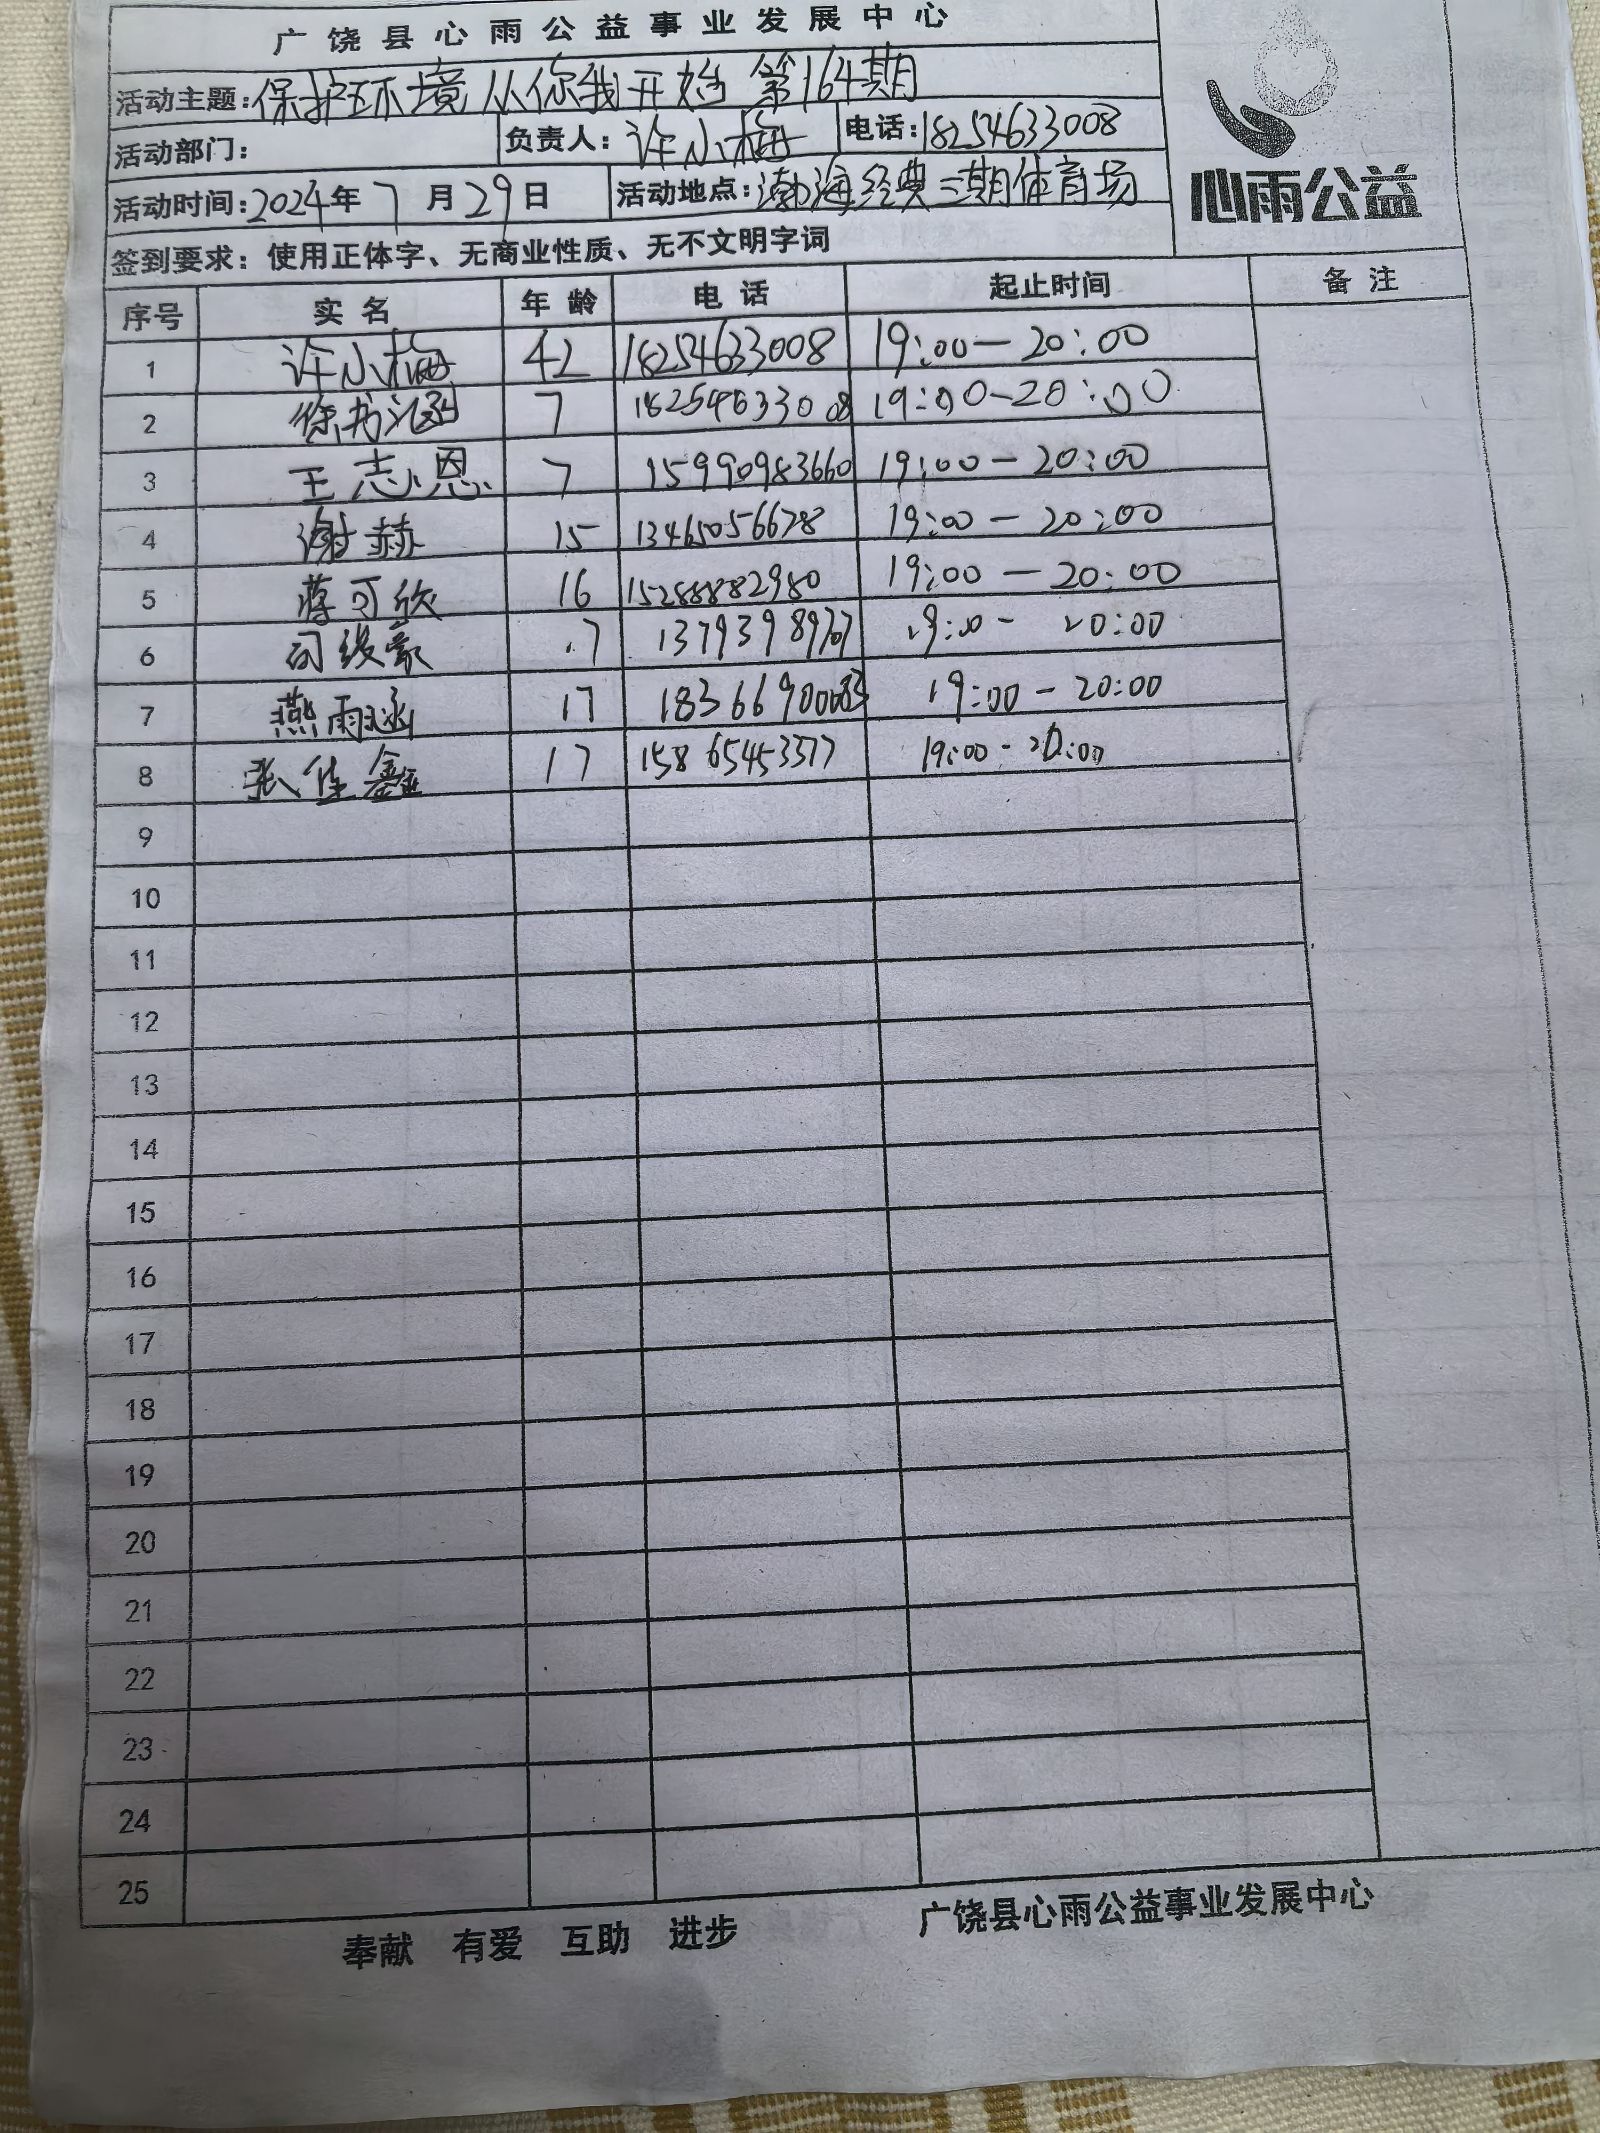 广饶县心雨公益事业发展中心
活动主题:保护环境从你我开始 第164期
活动部门: 负责人:许小梅 电话:18254633008
活动时间:2024年7月29日 活动地点:渤海经典三期体育场
心雨公益
签到要求:使用正体字、无商业性质、无不文明字词
序号 实名 年龄 电话 起止时间 备注
1 许小梅 42 18254633008 19:00-20:00
2 徐书涵 7 18254633008 19:00-20:00
3 王志恩 7 15990983660 19:00-20:00
4 谢赫 15 13465056678 19:00-20:00
5 蒋可欣 16 15288882980 19:00-20:00
6 17 19:00-20:00
7 燕雨涵 17 19:00-20:00
8 张佳鑫 17 15865453377 19:00-20:00
9
10
11
12
13
14
15
16
17
18
19
20
21
22
23
24
25
奉献 有爱 互助 进步 广饶县心雨公益事业发展中心